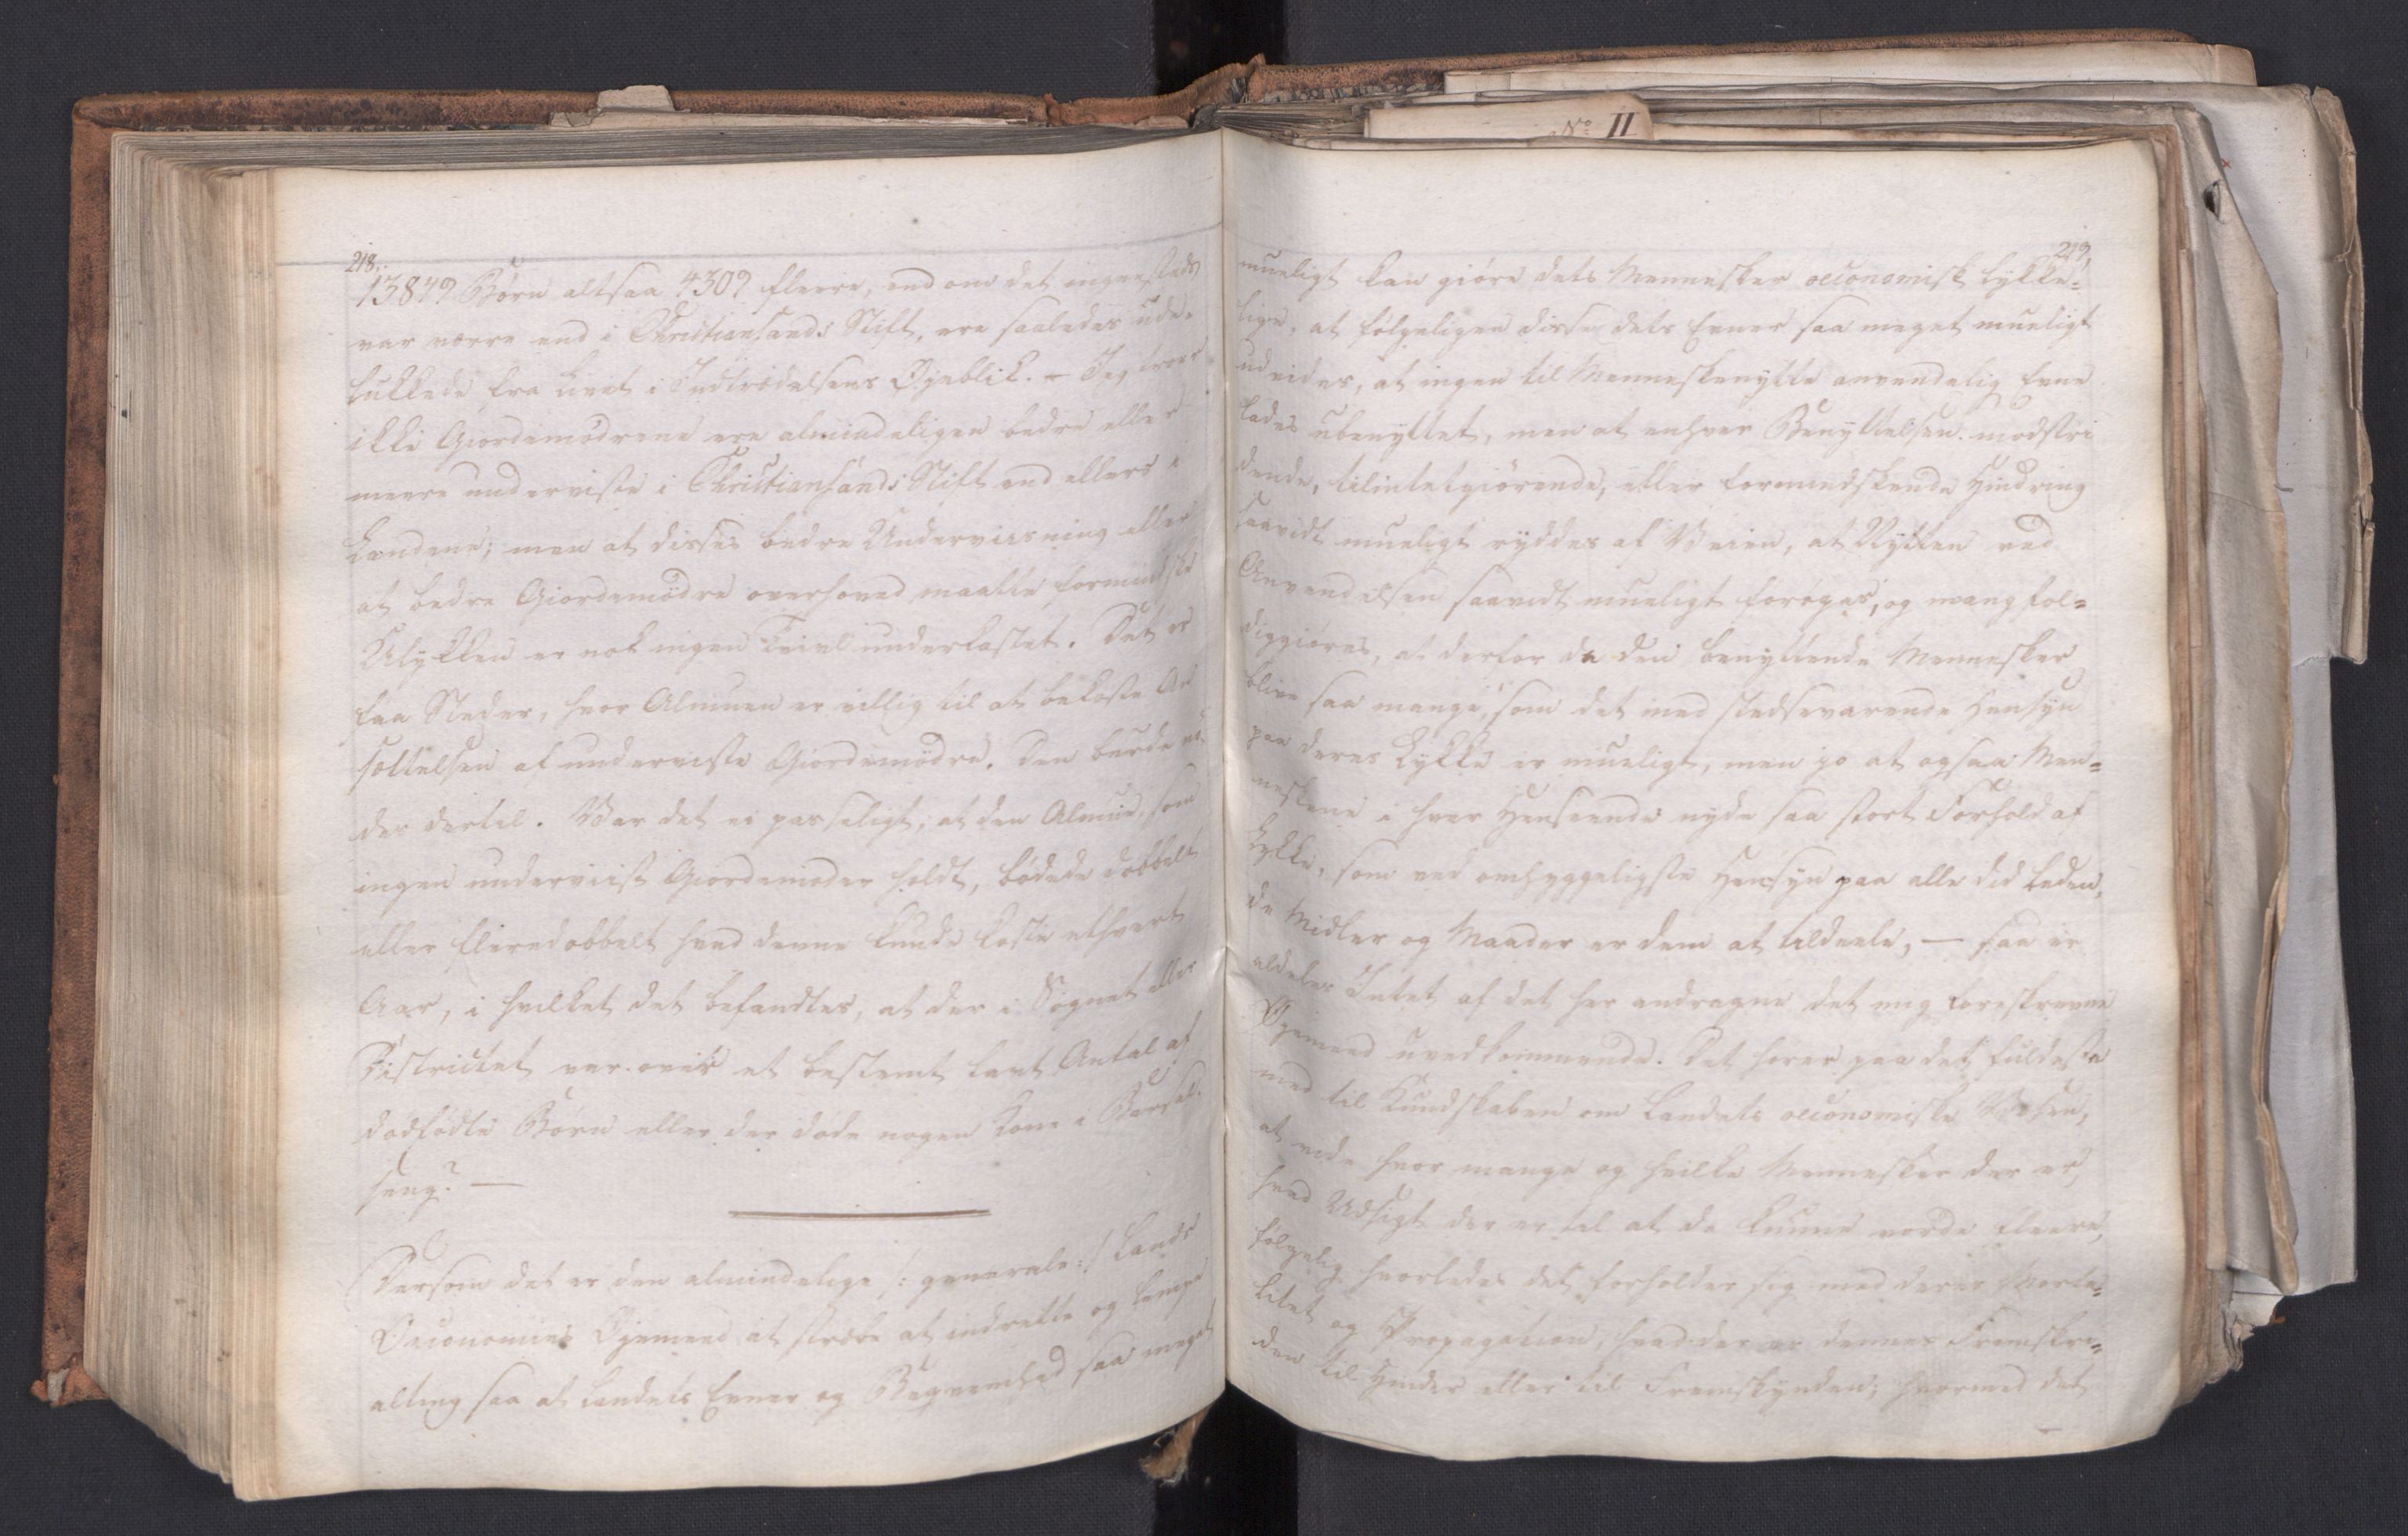 No II
218.
13849 Børn altsaa 4309 fleere, end om det ingensteds
var værre end i Christiansands Stift, ere saaledes ude-
lukkede fra Livet i Indtrædelsens Øjeblik. - Jeg troer
ikke Giordemødrene ere almindeligen bedre eller
meere underviste i Christiansands Stift end ellers i
Landene; men at disses bedre Underviisning eller
at bedre Giordemødre overhoved maatte formindske
Ulykken er nok ingen Tvivl underkastet. Det er
faa Steder, hvor Almuen er villig til at bekoste An
sættelsen af underviste Giordemødre. Den burde
der dertil. Var det ei passeligt, at den Almue, som
ingen underviist Giordemoder holdt, bødede dobbelt
eller fleredobbelt hvad denne kunde koste ethvert
Aar, i hvilket det befandtes, at der i Sognet eller
Districtet var over et bestemt lavt Antal af
dødfødte Børn eller der døde nogen Kone i Barsel-
seng? —
Dersom det er den almindelige /: generale :/ Lands
Oeconomies Øjemeed at stræbe at indrette og lempe
alting saa at Landets Evner og Beqvemhed saa meget
219.
mueligt kan giøre dets Mennesker oeconomisk lykke-
lige, at følgeligen disse dets Evner saa meget mueligt
udvides, at ingen til Menneskenytte anvendelig Evne
lades ubenyttet, men at enhver Benyttelsen modstri
dende, tilintetgiørende, eller formindskende Hindring
saavidt mueligt ryddes af Veien, at Nytten ved
Anvendelsen saavidt mueligt forøges, og mangfol-
diggiøres, at derfor da den benyttende Mennesker
blive saa mange, som det med stedsevarende Hensyn
paa deres Lykke er mueligt, men jo at ogsaa Men-
neskene i hver Henseende nyde saa stort Forhold af
Lykke, som ved omhyggeligste Hensyn paa alle did leden-
de Midler og Maader er dem at tildeele, — saa er
aldeles Intet af det her andragne det mig foreskrevne
Øjemeed uvedkommende. Det hører paa det fuldeste
med til Kundskaben om Landets oeconomiske Væsen,
at vide hvor mange og hvilke Mennesker der er,
hvad Udsigt der er til at de kunne vorde fleere,
følgelig hvorledes det forholder sig med deres Morta-
litet og Propagation, hvad der er dennes Fremskri-
den til Hinder eller til Fremskynden; hvormed det